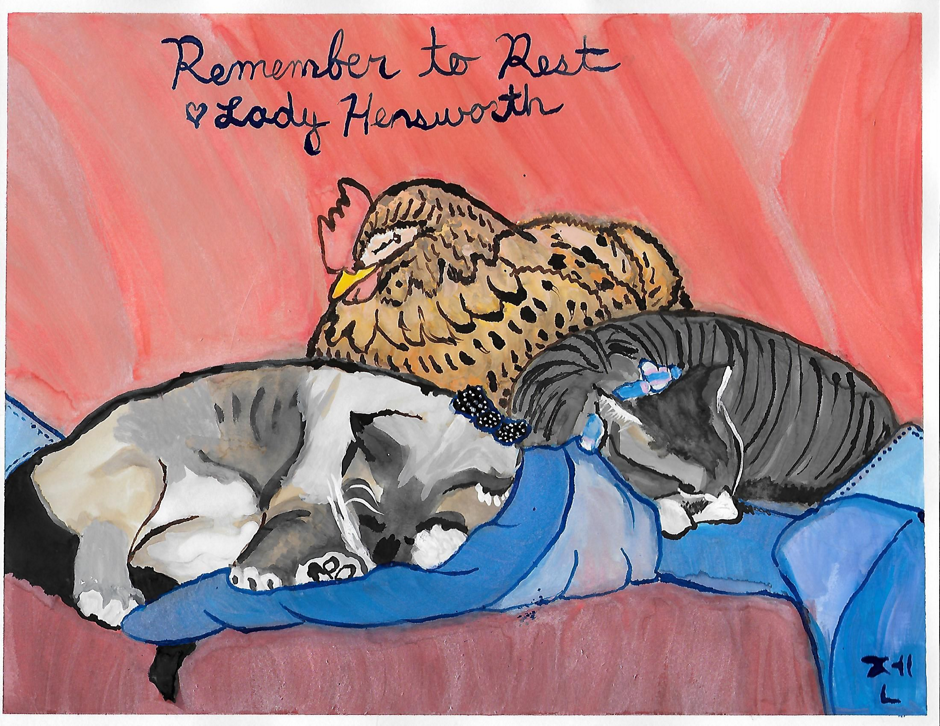 Remember to Rest
♥Lady Hensworth